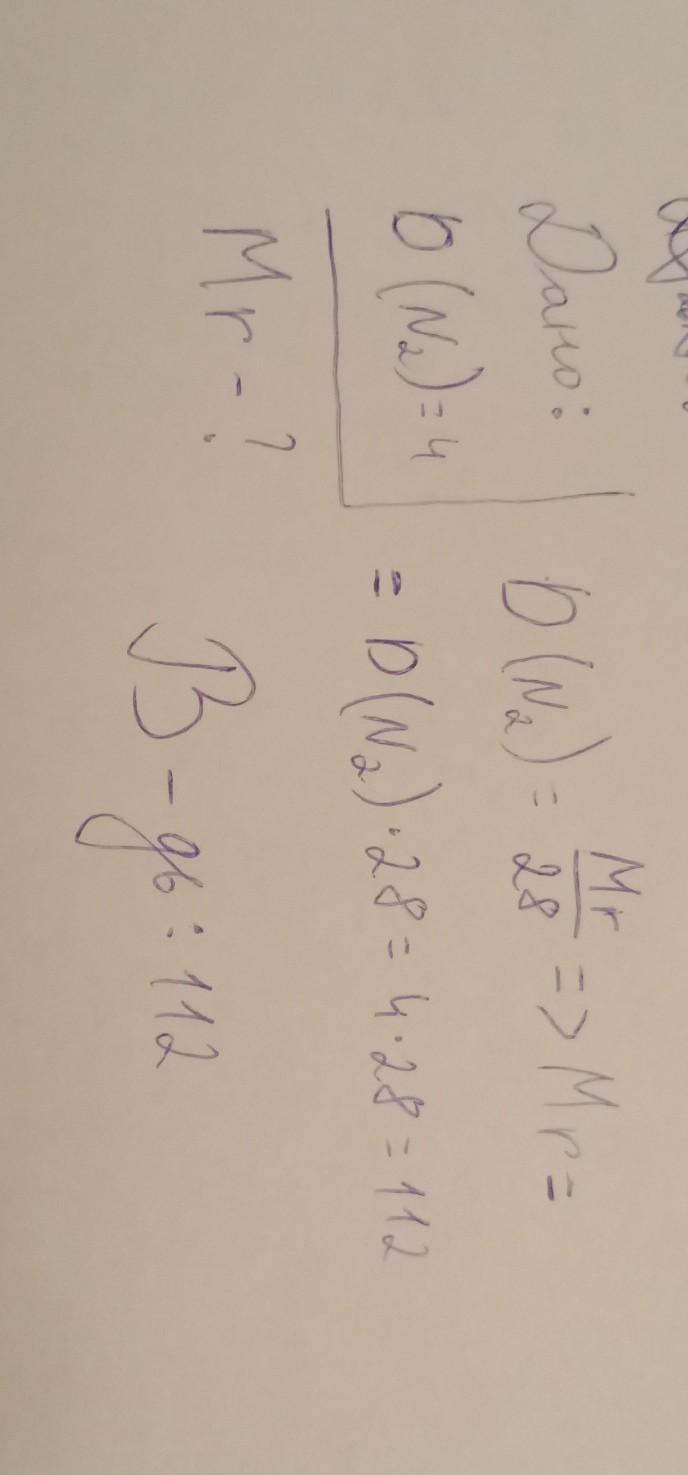 Дано:
D(N₂)=4
Mr-?
D(N₂) = Mr/28 => Mr =
= D(N₂)·28=4·28=112
В-дь: 112